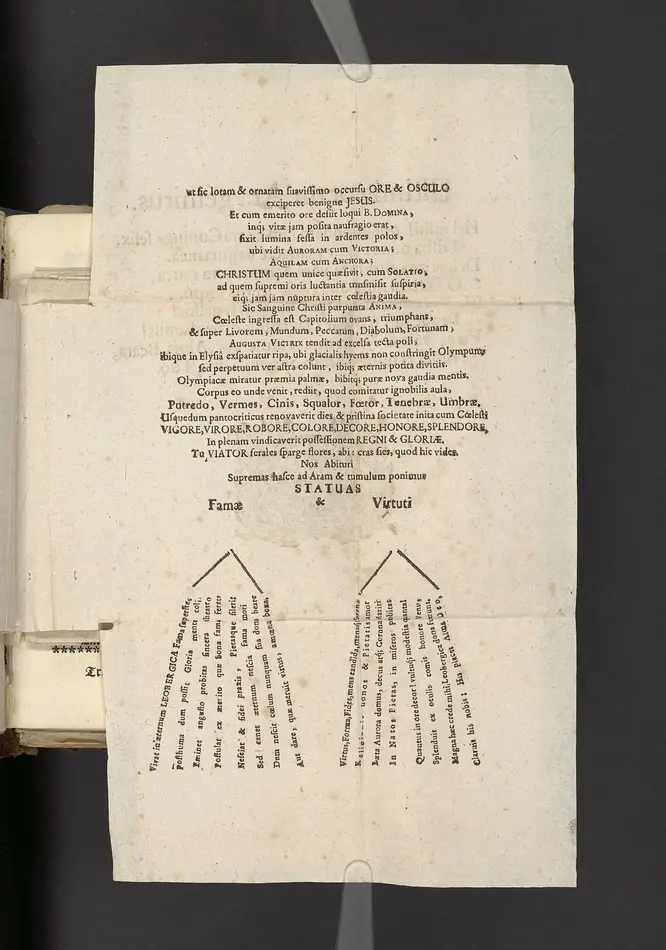 ut sic lotam & ornatam suavissimo occursu ORE & OSCULO
exciperet benigne JESUS.
Et cum emerito ore desiit loqui B. DOMINA,
inq; vitæ jam posita naufragio erat,
fixit lumina fessa in ardentes polos,
ubi vidit AURORAM cum VICTORIA;
AQUILAM cum ANCHORA;
CHRISTUM quem unice quæsivit, cum SOLATIO,
ad quem supremi oris luctantia transmisit suspiria,
eiq; jam jam nuptura inter cœlestia gaudia.
Sic Sanguine Christi purpurata ANIMA,
Cœleste ingressa est Capitolium ovans, triumphans,
& super Livorem, Mundum, Peccatum, Diabolum, Fortunam,
AUGUSTA VICTRIX tendit ad excelsa tecta poli,
ibique in Elysiâ exspatiatur ripa, ubi glacialis hyems non constringit Olympum,
sed perpetuum ver astra colunt, ibiq; æternis potita divitiis.
Olympiacæ miratur præmia palmæ, bibitq; puræ nova gaudia mentis.
Corpus eo unde venit, rediit, quod comitatur ignobilis aula,
Putredo, Vermes, Cinis, Squalor, Fœtor, Tenebræ, Umbræ,
Usquedum pantocriticus renovaverit dies & pristina societate inita cum Cœlesti
VIGORE, VIRORE, ROBORE, COLORE, DECORE, HONORE, SPLENDORE,
In plenam vindicaverit possessionem REGNI & GLORIÆ.
Tu VIATOR ferales sparge flores, abi: cras fies, quod hic vides.
Nos Abituri
Supremas hasce ad Aram & tumulum ponimus
STATUAS
Famæ & Virtuti
Vivat in æternum LEOBERGICA Fama superstes,
Posthuma dum possit Gloria mente coli.
Eminet angusto probitas sincera theatro
Postulat ex merito quæ bona fama fertur
Nesciat & fidei praxis, Pietasque sileri
Sed canet æternum nescia fama mori
Dum nescit cœlum nunquam sua dona beare
Aut dare, quæ meruit virtus, amœna bona.
Virtus, Forma, Fides, mens candida, mensq; serena
Religionis honos & Pietatis amor
Læta Aurora domus, decus atq; Corona mariti
In Natos Pietas, in miseros probitas
Quantus in ore decor! vultuq; modestia quanta!
Splenduit ex oculis comis honore Venus
Magna hæc crede mihi, Leobergica dona fuerunt,
Claruit his nobis: His placet Alma DEO.